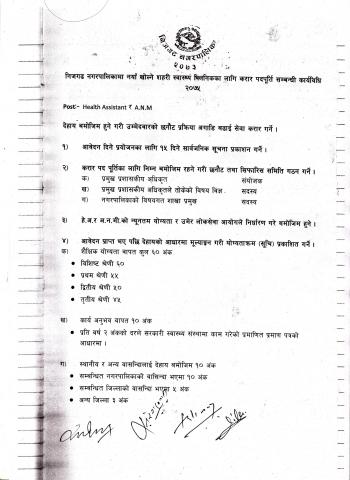 निजगढ नगरपालिका
२०७३
निजगढ नगरपालिकामा नयाँ खोल्ने शहरी स्वास्थ्य क्लिनिकका लागि करार पदपूर्ति सम्बन्धी कार्यविधि
२०७५
Post:- Health Assistant र A.N.M
देहाय बमोजिम हुने गरी उम्मेदवारको छनौट प्रक्रिया अगाडि बढाई सेवा करार गर्ने ।
१) आवेदन दिने प्रयोजनका लागि १५ दिने सार्वजनिक सूचना प्रकाशन गर्ने ।
२) करार पद पूर्तिका लागि निम्न बमोजिम रहने गरी छनौट तथा सिफारिस समिति गठन गर्ने ।
क) प्रमुख प्रशासकीय अधिकृत संयोजक
ख) प्रमुख प्रशासकीय अधिकृतले तोकेको विषय विज्ञ सदस्य
ग) नगरपालिकाको विषयगत शाखा प्रमुख सदस्य
३) हे.अ.र अ.न.मी.को न्यूनतम योग्यता र उमेर लोकसेवा आयोगले निर्धारण गरे बमोजिम हुने ।
४) आवेदन प्राप्त भए पछि देहायको आधारमा मूल्याङ्कन गरी योग्यताक्रम (सूचि) प्रकाशित गर्ने ।
क) शैक्षिक योग्यता बापत कुल ६० अंक
• विशिष्ट श्रेणी ६०
• प्रथम श्रेणी ५५
• द्वितीय श्रेणी ५०
• तृतीय श्रेणी ४५
ख) कार्य अनुभव बापत १० अंक
• प्रति वर्ष २ अंकको दरले सरकारी स्वास्थ्य संस्थामा काम गरेको प्रमाणित प्रमाण पत्रको
आधारमा ।
ग) स्थानीय र अन्य बासिन्दालाई देहाय बमोजिम १० अंक
• सम्बन्धित नगरपालिकाको बासिन्दा भएमा १० अंक
• सम्बन्धित जिल्लाको बासिन्दा भएमा ५ अंक
• अन्य जिल्ला ३ अंक